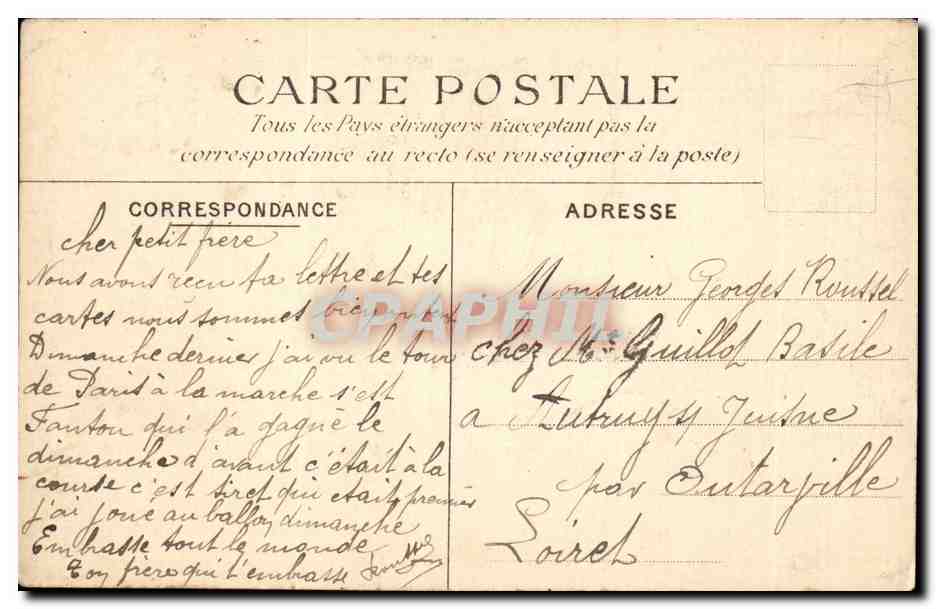 CARTE POSTALE
Tous les Pays étrangers n'acceptant pas la
correspondance au recto (se renseigner à la poste)
CORRESPONDANCE
cher petit frère
Nous avons reçu ta lettre et tes
cartes nous sommes
Dimanche dernier j'ai vu le tour
de Paris à la marche s'est
Fanton qui l'a gagné le
dimanche d'avant c'était à la
course c'est siret qui etait premier
j'ai joué au ballon dimanche
Embrasse tout le monde
Ton frère qui t'embrasse
ADRESSE
Monsieur Georges Roussel
chez Mr Guillot Basile
a Autruy s/ Juisne
par Outarville
Loiret
CPAPHIL